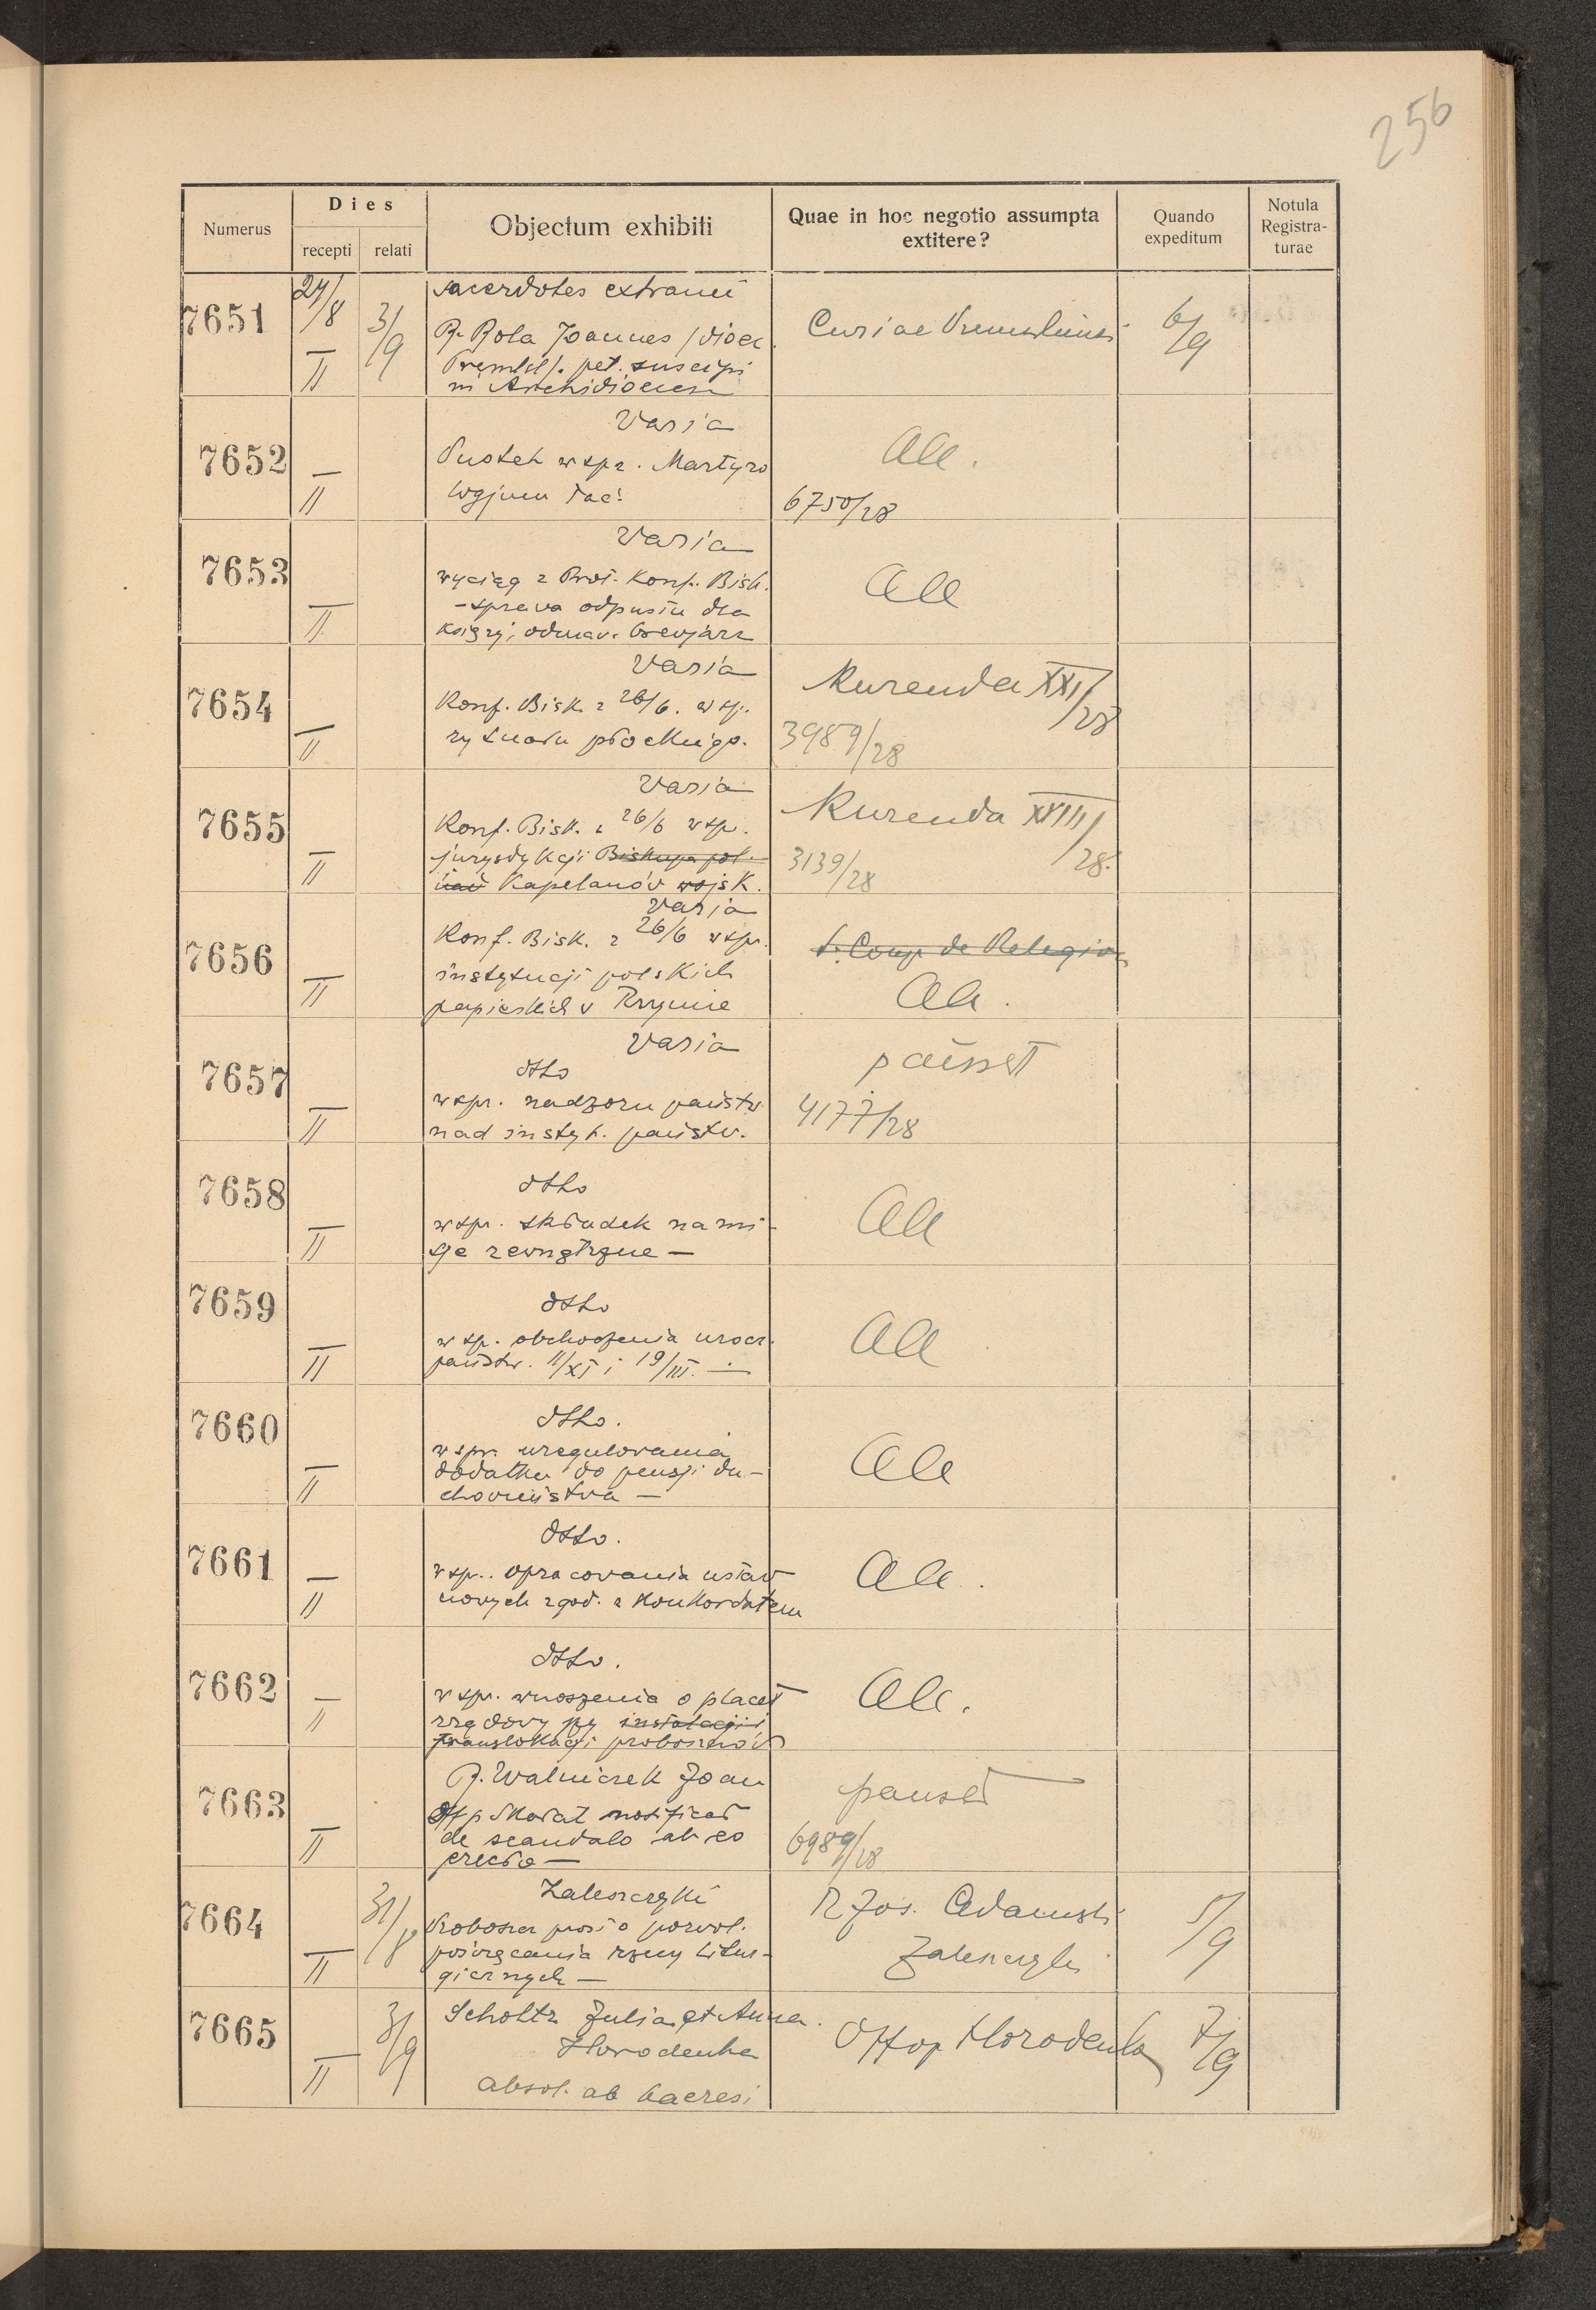 256
Numerus
Dies
recepti
relati
Objectum exhibiti
Quae in hoc negotio assumpta
extitere?
Quando
expeditum
Notula
Registra-
turae
7651
27/8
II
3/9
sacerdotes extranei
R. Rola Joannes /dioec.
Premisl/. pet. suscipi
in Archidioecesi
Curiae Premisliensi
6/9
7652
II
Varia
w spr. Martyro
logjum
Alle.
6750/28
7653
II
Varia
wyciąg z Prot. Konf. Bisk.
- sprawa odpustu dla
księży, odmaw. brewjarz
Alle
7654
II
Varia
Konf. Bisk. z 26/6. w sp.
rytuału płockiego.
Kurenda XXI/28
3989/28
7655
II
Varia
Konf. Bisk. z 26/6 w sp.
jurysdykcji Biskupa pol.
Kapelanów wojsk.
Kurenda XVIII/28.
3139/28
7656
II
Varia
Konf. Bisk. z 26/6 w spr.
instytucji polskich
papieskich w Rzymie
S. Cong. de Religio
Alle.
7657
II
Varia
dtto
w spr. nadzoru państw.
nad instyt. państw.
4177/28
7658
II
dtto
w spr. składek na mi-
sje zewnętrzne —
Alle
7659
II
dtto
w sp. obchodzenia urocz.
państw. 11/XI i 19/III. —
Alle
7660
II
dtto.
w spr. uregulowania
dodatku do pensji du-
chowieństwa —
Alle
7661
II
dtto.
w sp.. opracowania ustaw
nowych zgod. z Konkordatem
Alle.
7662
II
dtto.
w spr. wnoszenia o placet
rządowy przy instalacji i
translokacji proboszczów
Alle.
7663
II
R. Walniczek Joan
Offp Skałat notificat
de scandalo ab eo
6989/28
7664
II
31/8
Zaleszczyki
Proboszcz prosi o pozwol.
poświęcania rzeczy litur-
gicznych —
R Jos. Adamski
Zaleszczyki
5/9
7665
II
3/9
Scholtz Julia et Anna.
Horodenka
absol. ab haeresi
Offop Horodenka
7/9